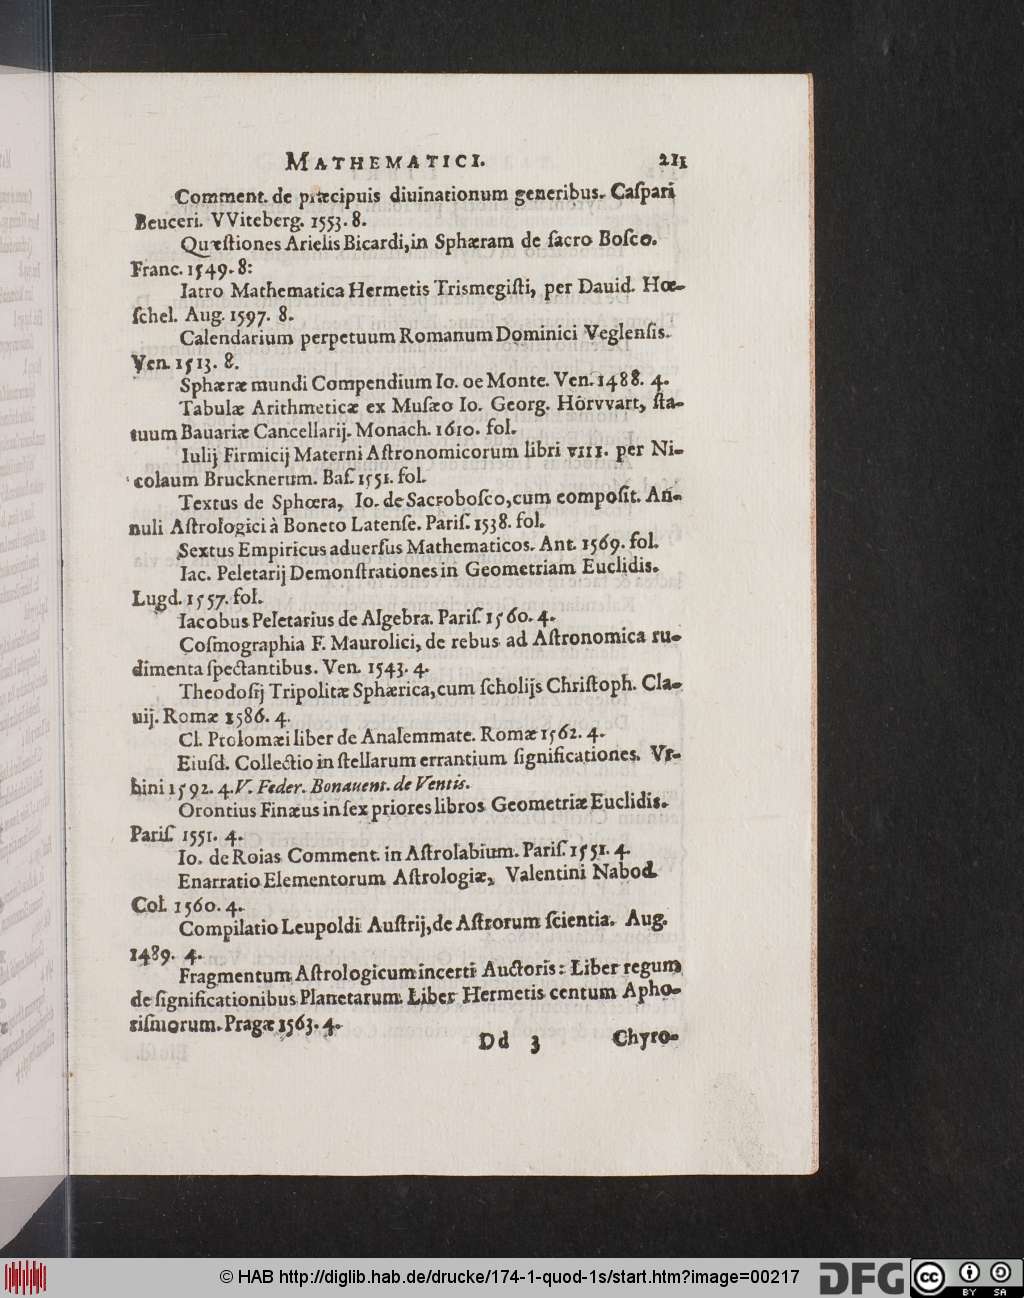 MATHEMATICI. 211
Comment. de præcipuis diuinationum generibus. Caſpari
Beuceri. VViteberg. 1553. 8.
Quæſtiones Arielis Bicardi, in Sphæram de ſacro Boſco.
Franc. 1549. 8:
Iatro Mathematica Hermetis Trismegiſti, per Dauid. Hœ-
ſchel. Aug. 1597. 8.
Calendarium perpetuum Romanum Dominici Veglenſis.
Ven. 1513. 8.
Sphæræ mundi Compendium Io. de Monte. Ven. 1488. 4.
Tabulæ Arithmeticæ ex Muſæo Io. Georg. Hörvvart, ſta-
tuum Bauariæ Cancellarij. Monach. 1610. fol.
Iulij Firmicij Materni Aſtronomicorum libri VIII. per Ni-
colaum Brucknerum. Baſ. 1551. fol.
Textus de Sphœra, Io. de Sacroboſco, cum compoſit. An-
nuli Aſtrologici à Boneto Latenſe. Pariſ. 1538. fol.
Sextus Empiricus aduerſus Mathematicos. Ant. 1569. fol.
Iac. Peletarij Demonſtrationes in Geometriam Euclidis.
Lugd. 1557. fol.
Iacobus Peletarius de Algebra. Pariſ. 1560. 4.
Coſmographia F. Maurolici, de rebus ad Aſtronomica ru-
dimenta ſpectantibus. Ven. 1543. 4.
Theodoſij Tripolitæ Sphærica, cum ſcholijs Chriſtoph. Cla-
uij. Romæ 1586. 4.
Cl. Ptolomæi liber de Analemmate. Romæ 1562. 4.
Eiuſd. Collectio in ſtellarum errantium ſignificationes. Vr-
bini 1592. 4. V. Feder. Bonauent. de Ventis.
Orontius Finæus in ſex priores libros Geometriæ Euclidis.
Pariſ. 1551. 4.
Io. de Roias Comment. in Aſtrolabium. Pariſ. 1551. 4.
Enarratio Elementorum Aſtrologiæ, Valentini Nabod.
Col. 1560. 4.
Compilatio Leupoldi Auſtrij, de Aſtrorum ſcientia. Aug.
1489. 4.
Fragmentum Aſtrologicum incerti Auctoris: Liber regum
de ſignificationibus Planetarum. Liber Hermetis centum Apho-
riſmorum. Pragæ 1563. 4.
Dd 3 Chyro-
© HAB http://diglib.hab.de/drucke/174-1-quod-1s/start.htm?image=00217
DFG
cc BY SA